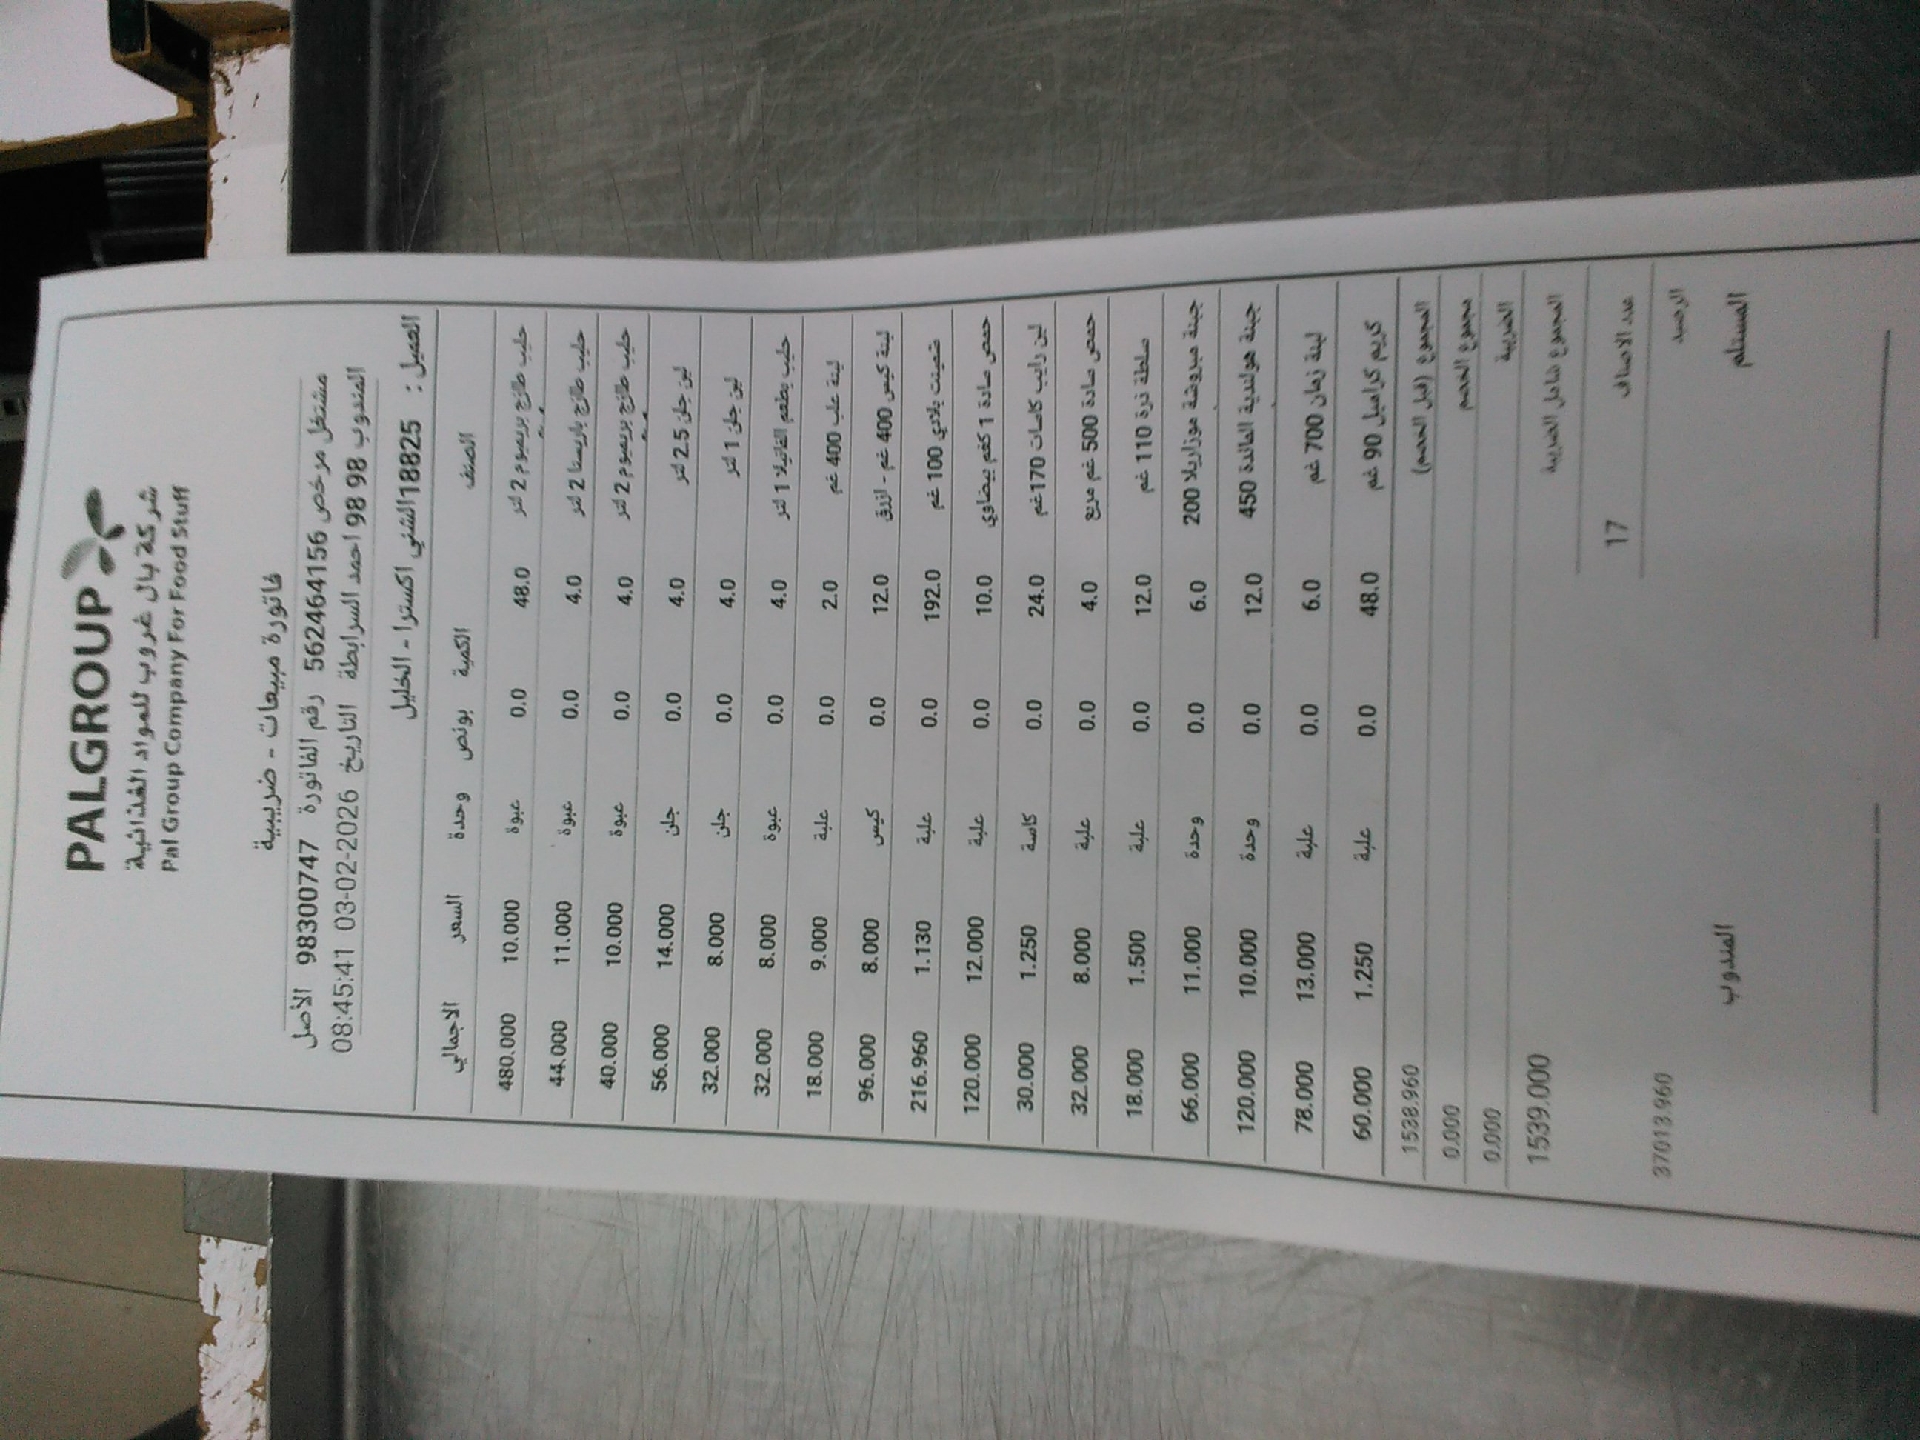 PALGROUP
شركة بال غروب للمواد الغذائية
Pal Group Company For Food Stuff
فاتورة مبيعات - ضريبية
مشتغل مرخص 562464156 رقم الفاتورة 98300747 الأصل
المندوب 98 98 احمد السرابطة التاريخ 03-02-2026 08:45:41
العميل : 18825الشني اكسترا - الخليل
الصنف الكمية بونص وحدة السعر الاجمالي
حليب طازج بريميوم 2 لتر 48.0 0.0 عبوة 10.000 480.000
حليب طازج باريستا 2 لتر 4.0 0.0 عبوة 11.000 44.000
حليب طازج بريميوم 2 لتر 4.0 0.0 عبوة 10.000 40.000
لبن جلن 2.5 لتر 4.0 0.0 جلن 14.000 56.000
لبن جلن 1 لتر 4.0 0.0 جلن 8.000 32.000
حليب بطعم الفانيلا 1 لتر 4.0 0.0 عبوة 8.000 32.000
لبنة علب 400 غم 2.0 0.0 علبة 9.000 18.000
لبنة كيس 400 غم - ازرق 12.0 0.0 كيس 8.000 96.000
شمينت بلادي 100 غم 192.0 0.0 علبة 1.130 216.960
حمص سادة 1 كغم بيضاوي 10.0 0.0 علبة 12.000 120.000
لبن رايب كاسات 170غم 24.0 0.0 كاسة 1.250 30.000
حمص سادة 500 غم مربع 4.0 0.0 علبة 8.000 32.000
سلطة ذرة 110 غم 12.0 0.0 علبة 1.500 18.000
جبنة مبروشة موزاريلا 200 6.0 0.0 وحدة 11.000 66.000
جبنة هولندية المائدة 450 12.0 0.0 وحدة 10.000 120.000
لبنة زمان 700 غم 6.0 0.0 علبة 13.000 78.000
كريم كراميل 90 غم 48.0 0.0 علبة 1.250 60.000
المجموع (قبل الخصم) 1538.960
مجموع الخصم 0.000
الضريبة 0.000
المجموع شامل الضريبة 1539.000
عدد الاصناف 17
الرصيد 37013.960
المستلم المندوب